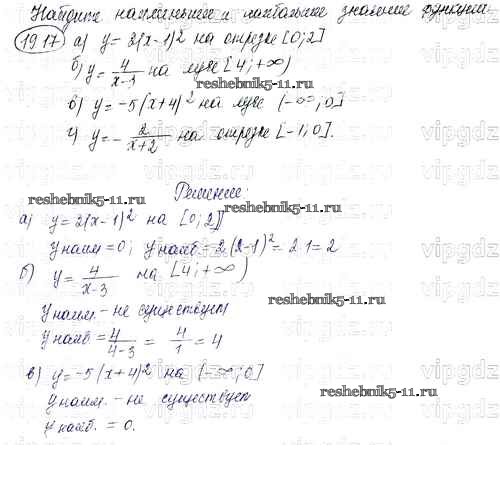 Найдите наименьшее и наибольшее значение функции
19.17 а) y = 2(x-1)² на отрезке [0; 2]
б) y = 4/(x-3) на луче [4; +∞)
в) y = -5(x+4)² на луче (-∞; 0]
г) y = - 2/(x+2) на отрезке [-1; 0].
reshebnik5-11.ru
Решение:
reshebnik5-11.ru
а) y = 2(x-1)² на [0; 2]
y наим = 0; y наиб = 2(2-1)² = 2·1 = 2
б) y = 4/(x-3) на [4; +∞)
reshebnik5-11.ru
y наим. - не существует
y наиб = 4/(4-3) = 4/1 = 4
в) y = -5(x+4)² на (-∞; 0]
reshebnik5-11.ru
y наим. - не существует
y наиб. = 0.
vipgdz